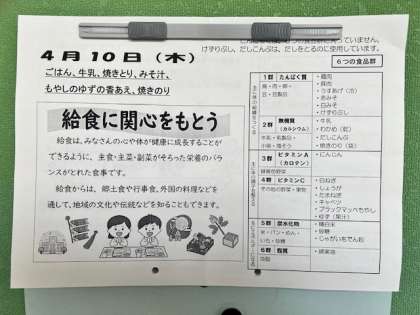 していません。
けずりぶし、だしこんぶは、だしをとるのに使用しています。
4月10日（木）
ごはん、牛乳、焼きとり、みそ汁、
もやしのゆずの香あえ、焼きのり
給食に関心をもとう
給食は、みなさんの心や体が健康に成長することが
できるように、主食・主菜・副菜がそろった栄養のバラ
ンスがとれた食事です。
給食からは、郷土食や行事食、外国の料理などを
通して、地域の文化や伝統などを知ることもできます。
6つの食品群
1群 たんぱく質
魚・肉・卵・
豆・豆製品
・鶏肉
・豚肉
・うすあげ（力）
・赤みそ
・白みそ
・けずりぶし
2群 無機質
（カルシウム）
牛乳・乳製品・
小魚・海そう
・牛乳
・わかめ（乾）
・だしこんぶ
・焼きのり（袋）
3群 ビタミンA
（カロテン）
緑黄色野菜
・にんじん
4群 ビタミンC
その他の野菜・果物
・白ねぎ
・しょうが
・たまねぎ
・キャベツ
・ブラックマッペもやし
・ゆず（果汁）
5群 炭水化物
米・パン・めん・
いも・砂糖
・精白米
・砂糖
・じゃがいもでん粉
6群 脂質
油脂
・綿実油